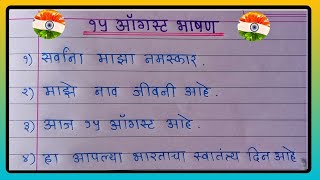 १५ ऑगस्ट भाषण
१) सर्वांना माझा नमस्कार.
२) माझे नाव जीवनी आहे.
३) आज १५ ऑगस्ट आहे.
४) हा आपल्या भारताचा स्वातंत्र्य दिन आहे